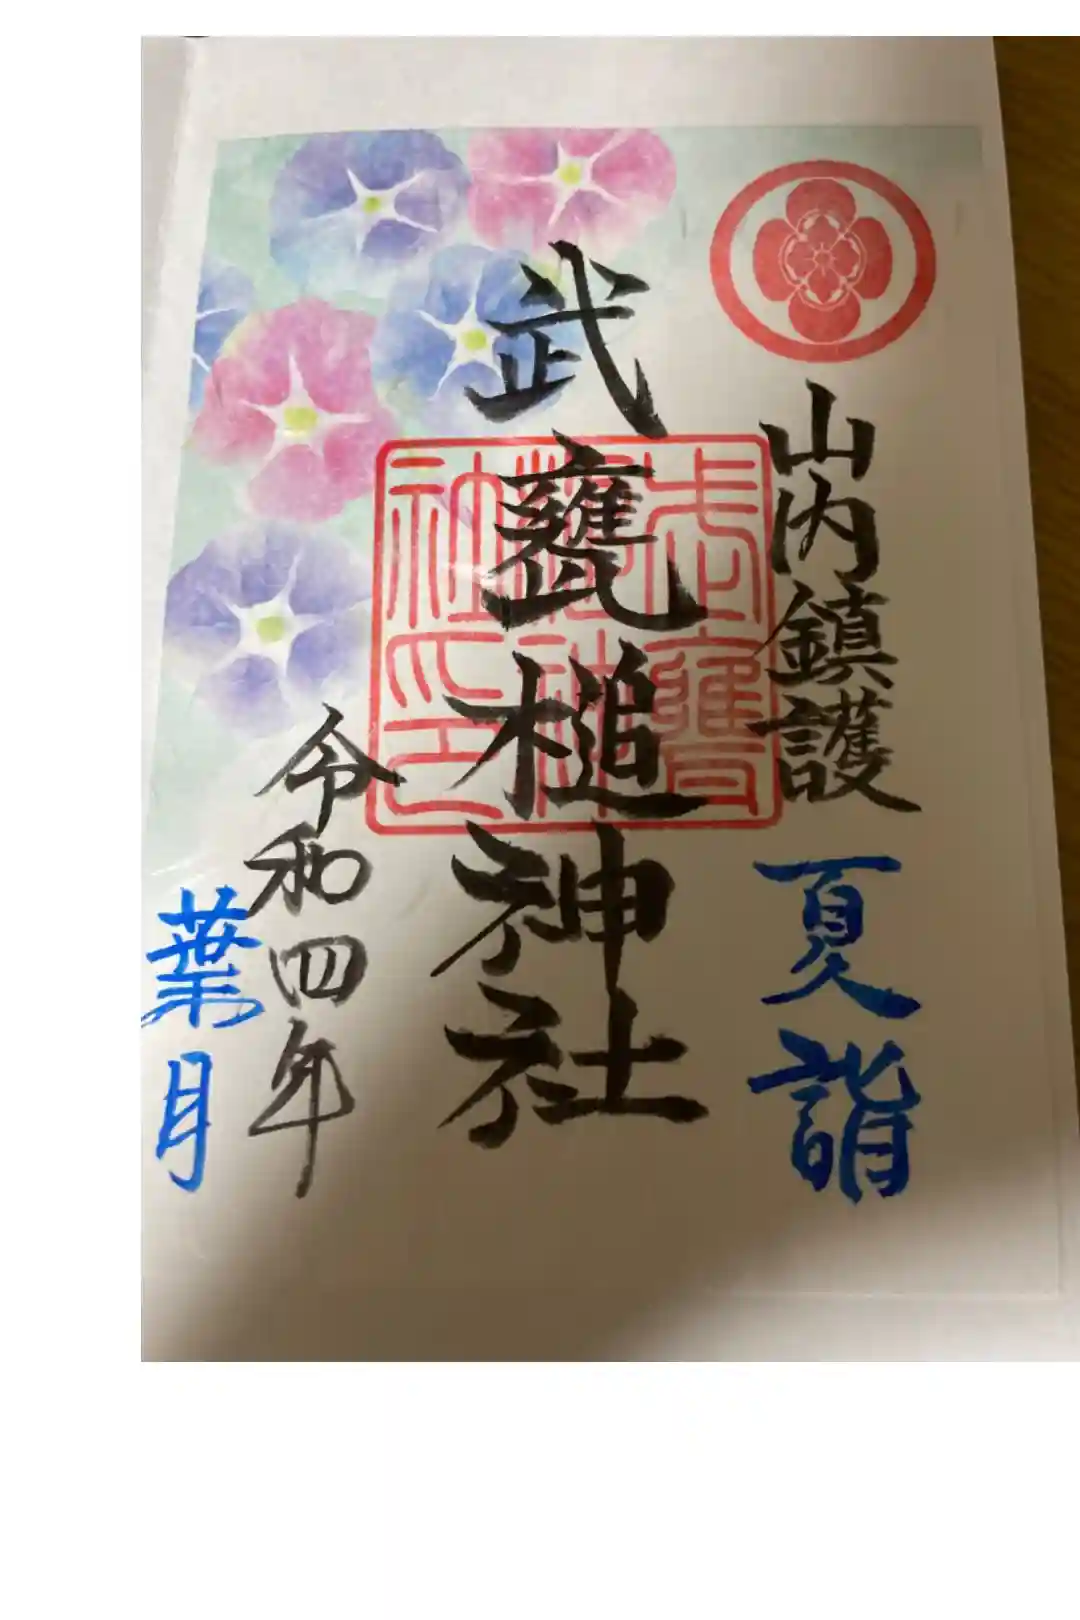 山内鎮護
夏詣
武甕槌神社
令和四年
葉月
武甕槌神社之印